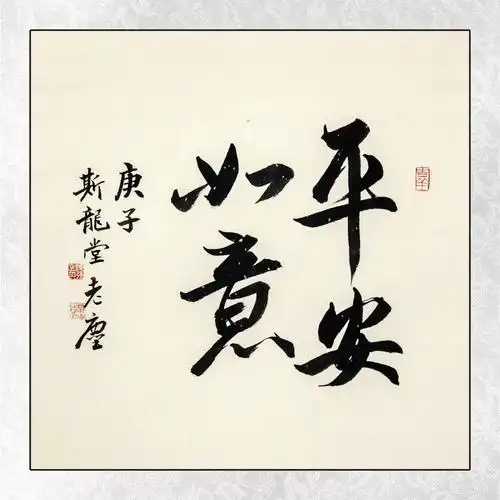 平安
如意
庚子
斯龍堂老塵